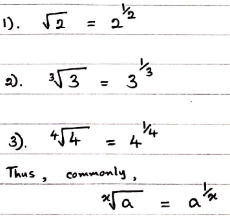 1). √2 = 2^{1/2}
2). ∛3 = 3^{1/3}
3). ∜4 = 4^{1/4}
Thus, commonly,
ˣ√a = a^{1/x}